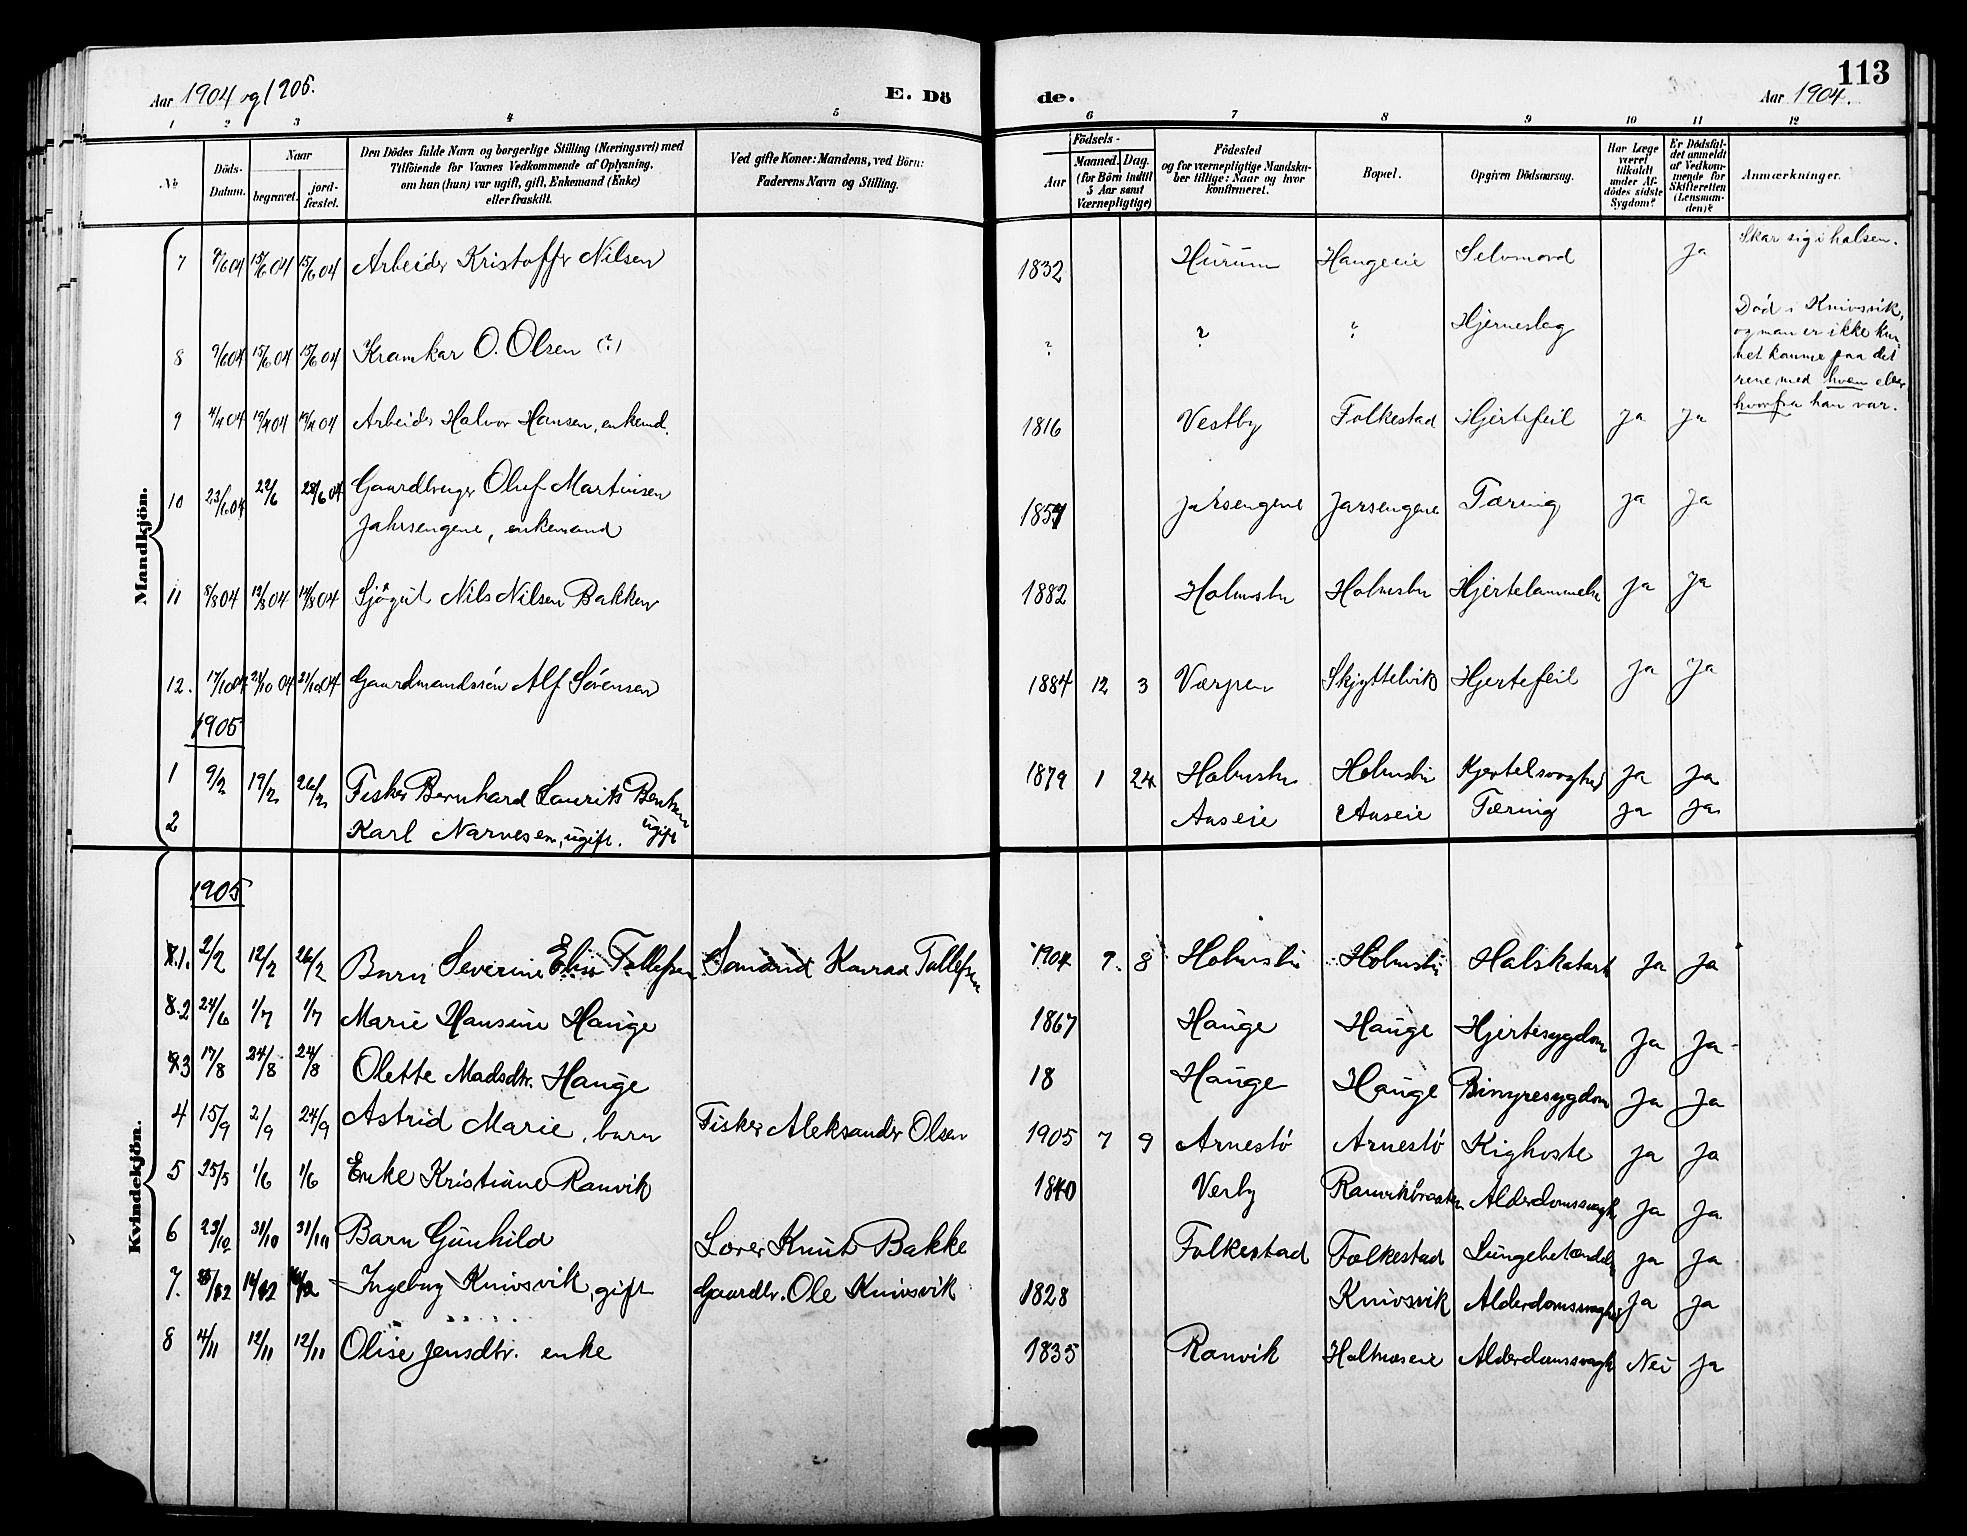 Aar 1904 og 1905.
E. Dö
de.
113
Aar 1904.
1 2 3 4 5 6 7 8 9 10 11 12
No
Döds-
Datum.
Naar
begravet.
jord-
fæstet.
Den Dödes fulde Navn og borgerlige Stilling (Næringsvei) med
Tilföiende for Voxnes Vedkommende af Oplysning,
om han (hun) var ugift, gift, Enkemand (Enke)
eller fraskilt.
Ved gifte Koner: Mandens, ved Börn:
Faderens Navn og Stilling.
Födsels-
Aar
Maaned. Dag.
(for Börn indtil
5 Aar samt
Værnepligtige)
Födested
og for værnepligtige Mandska-
ber tillige: Naar og hvor
konfirmeret.
Bopæl.
Opgiven Dödsaarsag.
Har Læge
været
tilkaldt
under Af-
dödes sidste
Sygdom?
Er Dödsfal-
det anmeldt
af Vedkom-
mende for
Skifteretten
(Lensman-
den)?
Anmærkninger.
Mandkjön.
7 9/6 04 15/6 04 15/6 04 Arbeider Kristoffer Nilsen 1832 Hurum Haugeeie Selvmord ja Skar sig i halsen.
8 9/6 04 15/6 04 15/6 04 Kramkar O. Olsen (?) ? ? ? Hjerneslag Död i Knivsvik,
og man er ikke kun-
net komme paa det
rene med hvem eller
hvorfra han var.
9 4/4 04 19/4 04 19/4 04 Arbeider Halvor Hansen, enkemd. 1816 Vestby Folkestad Hjertefeil ja ja
10 23/6 04 28/6 04 Gaardbruger Oluf Martinsen
Jahrsengene, enkemand 1857 Jarsengene Jarsengene Tæring ja ja
11 8/8 04 14/8 04 Sjögut Nils Nilsen Bakken 1882 Holmsbu Holmsbu Hjertelammelse ja ja
12. 17/10 04 21/10 04 21/10 04 Gaardmandssön Alf Sörensen 1884 12 3 Værpen Skjyttelvik Hjertefeil ja ja
1905
1 9/2 19/2 26/2 Fisker Bernhard Laurits
ugift 1879 1 24 Holmsbu Holmsbu Kjertelsvaghed ja ja
2 Karl Narvesen, ugift. Auseie Auseie Tæring ja ja
Kvindekjön.
1905
1. 2/2 12/2 26/2 Barn Severine Elise Tollefsen Konrad Tollefsen 1904 9 8 Holmsbu Holmsbu Halskatarh Ja Ja
2 24/6 1/7 1/7 Marie Hansine Hauge 1867 Hauge Hauge Hjertesygdom Ja Ja
3 17/8 24/8 24/8 Olette Madsdtr. Hauge 18 Hauge Hauge Binyresygdom Ja Ja
4 15/9 2/9 24/9 Astrid Marie, barn Fisker Aleksander Olsen 1905 7 9 Arnestö Arnestö Kighoste Ja Ja
5 25/5 1/6 1/6 Enke Kristiane Ranvik 1840 Verby Ranvikbraaten Alderdomssvagh Ja Ja
6 23/10 31/10 31/10 Barn Gunhild Knut Bakke Folkestad Folkestad Lungebetændels Ja Ja
7. Ingeborg Knivsvik, gift Gaardbr. Ole Knivsvik 1828 Knivsvik Alderdomssvaghed Ja Ja
8 4/11 12/11 12/11 Olise Jensdtr. enke 1835 Ranvik Holtnæseie Alderdomssvagh Nei Ja